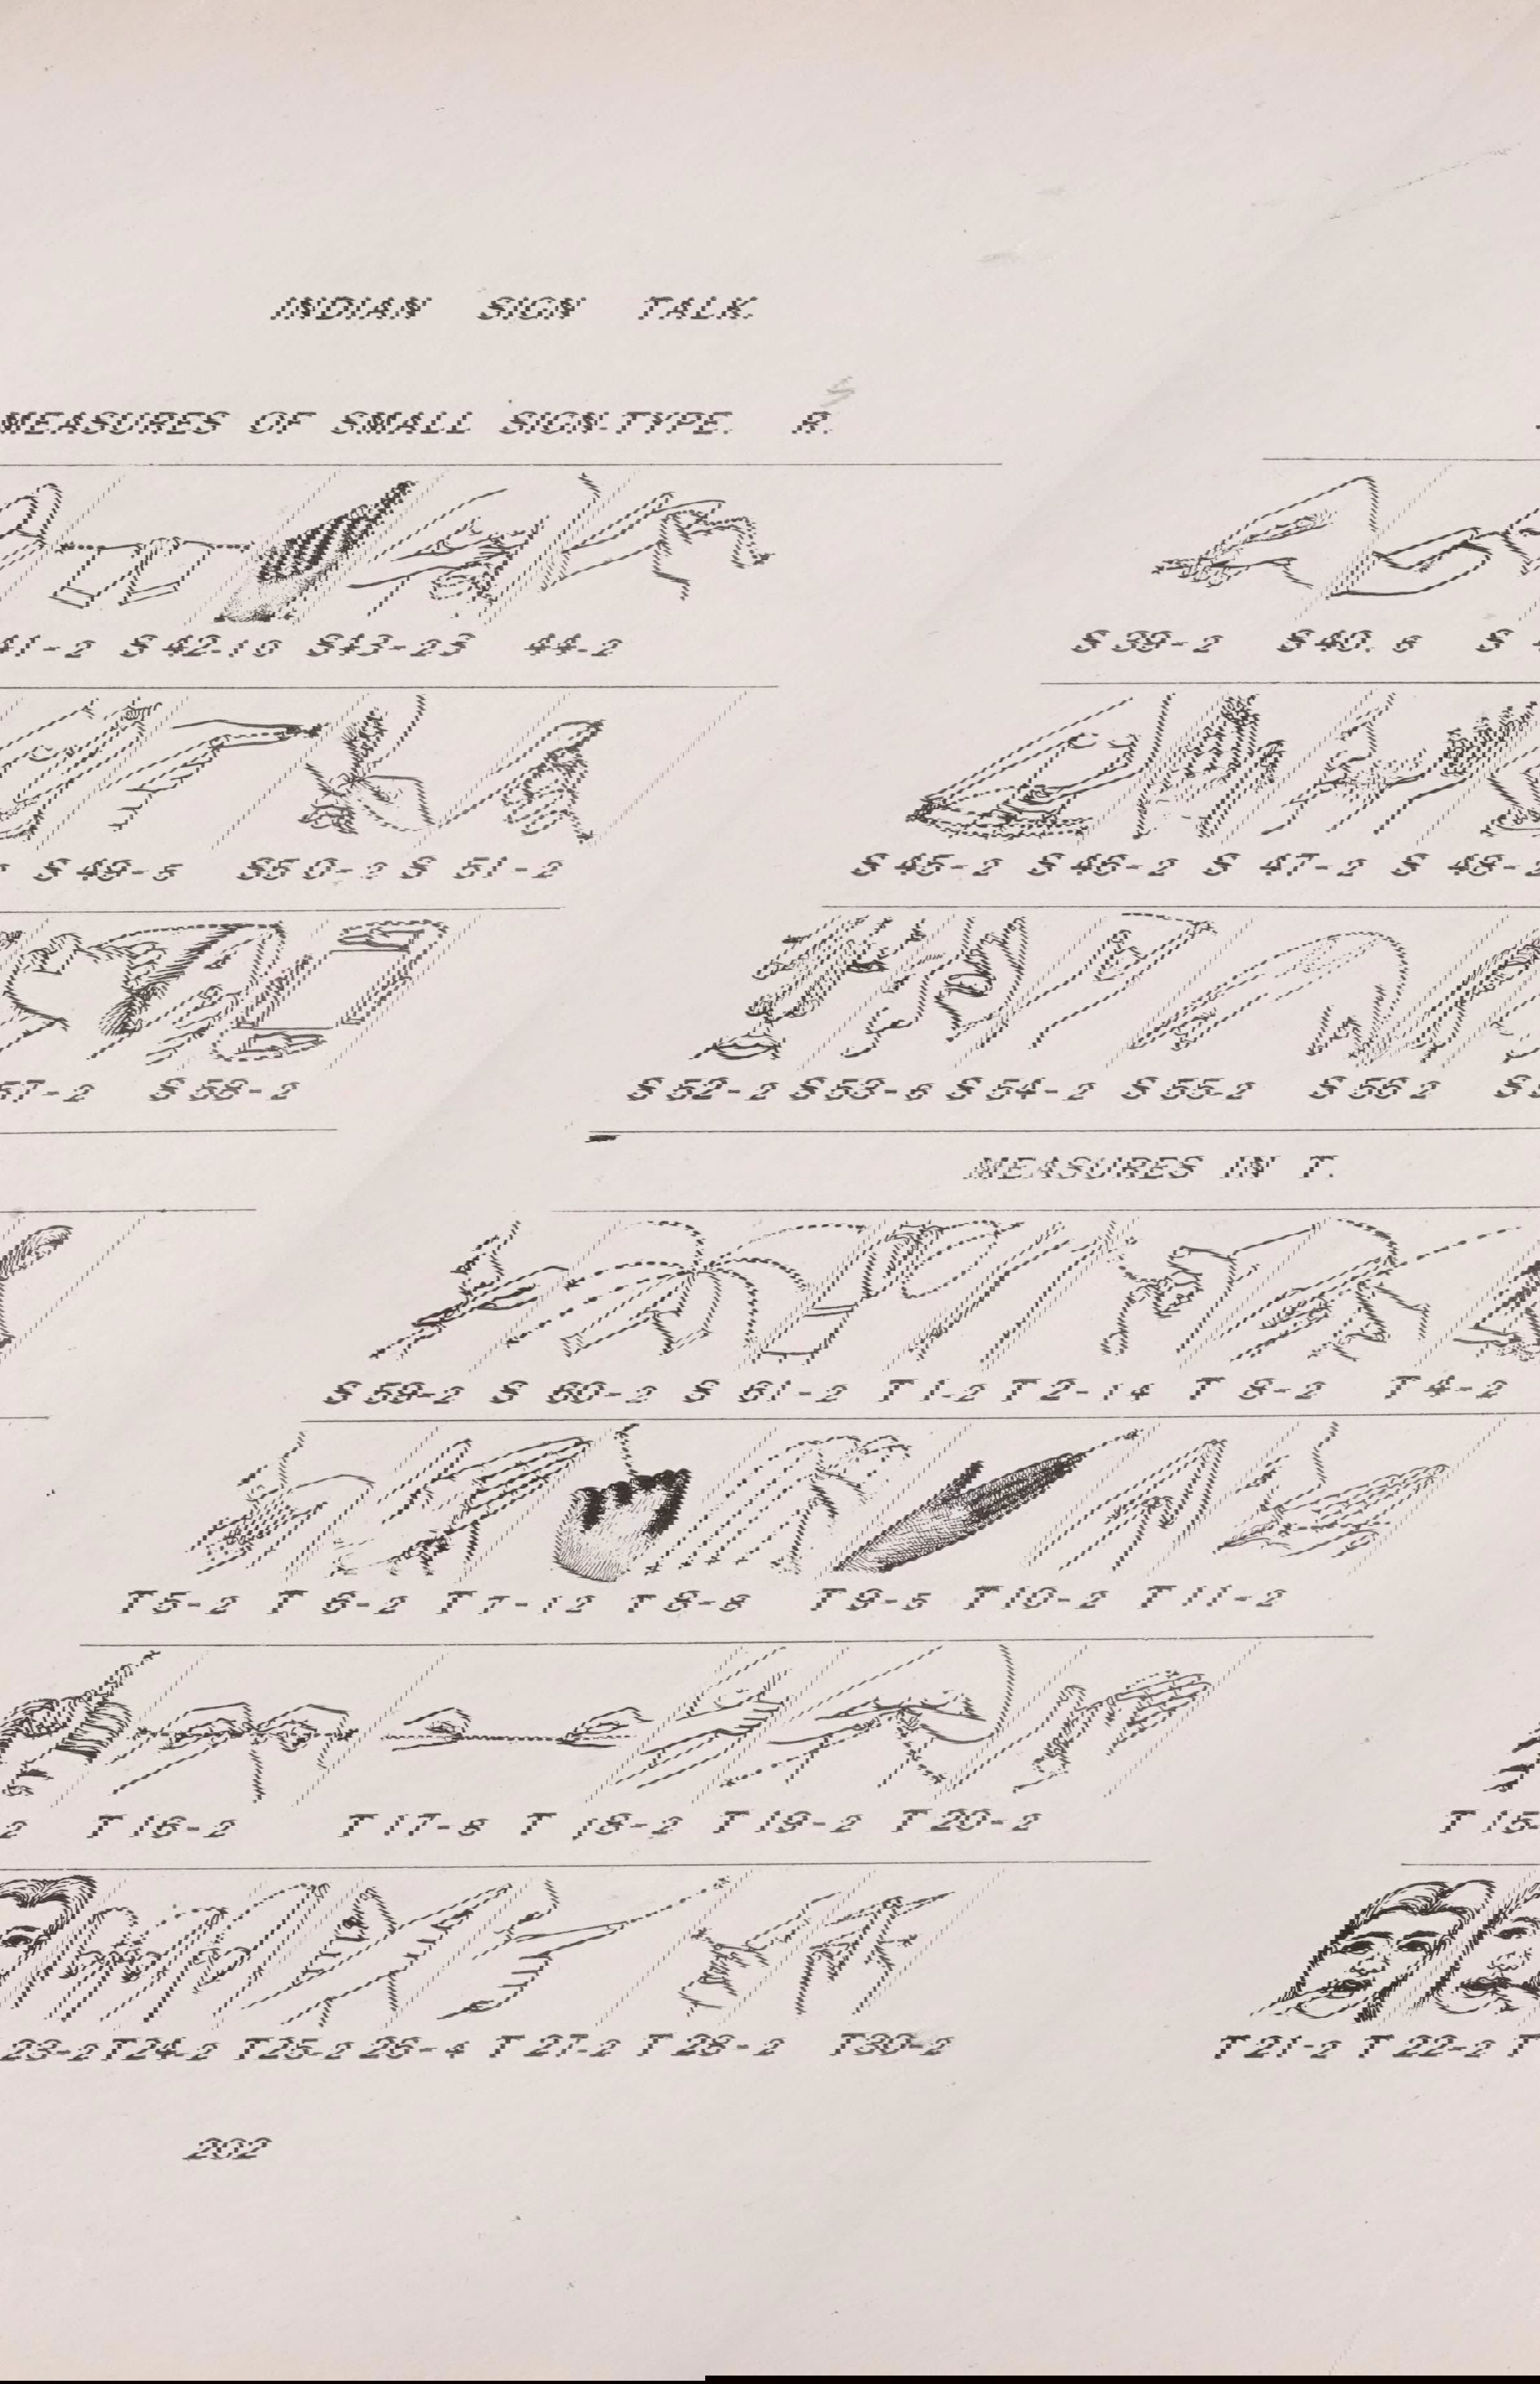 INDIAN SIGN TALK.
MEASURES OF SMALL SIGN-TYPE. R.
S
S 39-2 S 40. 6 S 41-2 S 42-10 S43-23 44-2
S 45-2 S 46-2 S 47-2 S 48-2 S 49-5 S50-2 S 51-2
S 52-2 S 53-6 S 54-2 S 55-2 S 56 2 S 57-2 S 58-2
MEASURES IN T.
S 59-2 S 60-2 S 61-2 T 1-2 T 2-14 T 3-2 T 4-2
T 5-2 T 6-2 T 7-12 T 8-8 T 9-5 T 10-2 T 11-2
T 15-2 T 16-2 T 17-8 T 18-2 T 19-2 T 20-2
T 21-2 T 22-2 T 23-2 T24-2 T25-2 26-4 T 27-2 T 28-2 T30-2
202